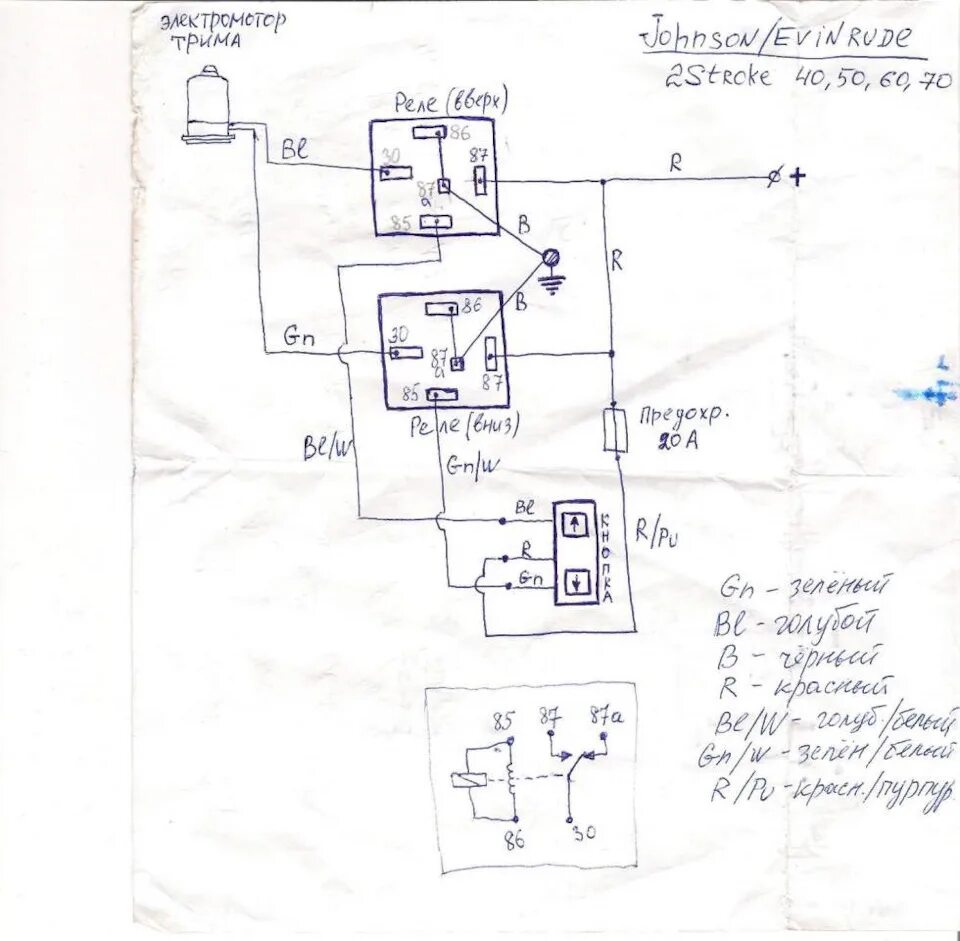 электромотор
трима
Johnson/EVINRUDE
2Stroke 40,50,60,70
Реле (вверх)
86
Bl
30
87
87
a
85
R
+
B
R
B
86
Gn
30
87
a
87
85
Реле (вниз)
Предохр.
20A
Bl/W
Gn/W
Bl
R
Gn
КНОПКА
R/Pu
Gn - зелёный
Bl - голубой
B - чёрный
R - красный
Bl/W - голуб./белый
Gn/W - зелён/белый
R/Pu - красн./пурпур.
85
87
87a
86
30